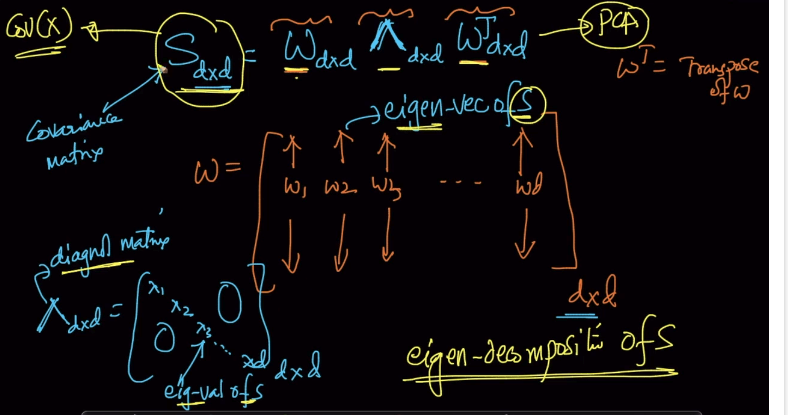 Cov(X)
S dxd = W dxd Λ dxd Wᵀ dxd → PCA
Wᵀ = Transpose of W
Covariance matrix
eigen-vec of S
W = [ W1 W2 W3 --- Wd ] dxd
diagnol matrix
Λ dxd = [ λ1 λ2 λ3 ... λd 0 0 ] dxd
eig-val of S
eigen-decompositi of S